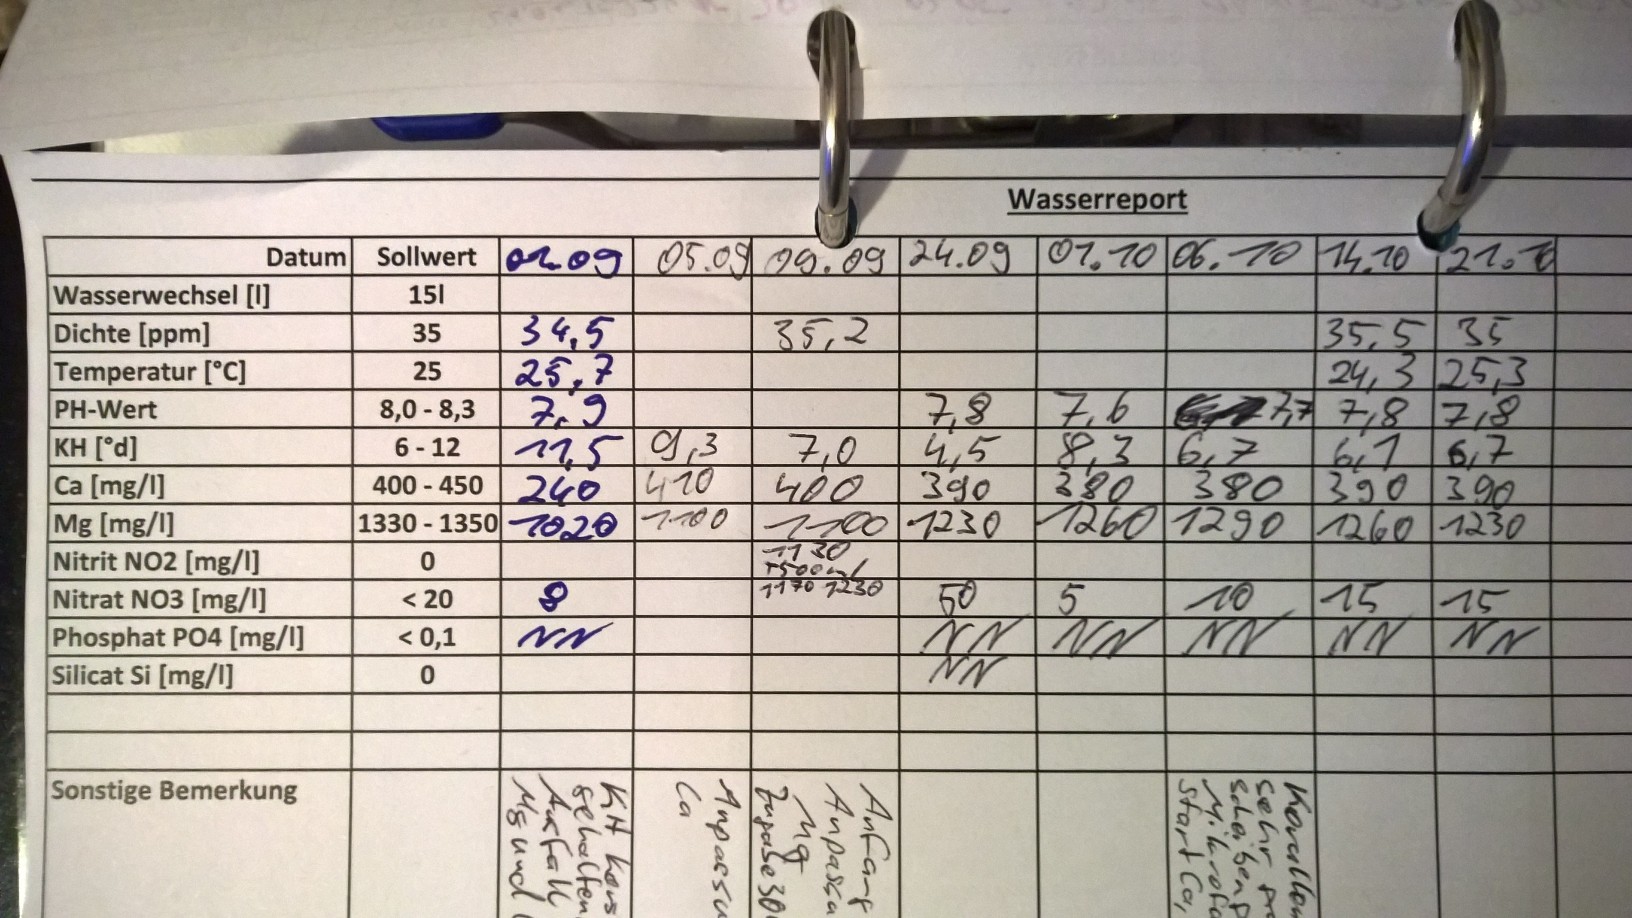 Wasserreport
Datum Sollwert 01.09 05.09 09.09 24.09 01.10 06.10 14.10 21.10
Wasserwechsel [l] 15l
Dichte [ppm] 35 34,5 35,2 35,5 35
Temperatur [°C] 25 25,7 24,3 25,3
PH-Wert 8,0 - 8,3 7,9 7,8 7,6 7,7 7,8 7,8
KH [°d] 6 - 12 11,5 9,3 7,0 4,5 8,3 6,7 6,1 6,7
Ca [mg/l] 400 - 450 240 410 400 390 380 380 390 390
Mg [mg/l] 1330 - 1350 1020 1100 1100 1230 1260 1290 1260 1230
Nitrit NO2 [mg/l] 0 1130
+500ml
Nitrat NO3 [mg/l] < 20 8 1170 1230 50 5 10 15 15
Phosphat PO4 [mg/l] < 0,1 NN NN NN NN NN NN
Silicat Si [mg/l] 0 NN
Sonstige Bemerkung
KH
gehalten
Ausfall
Mg und
Anpassu
Ca
Anfang
Anpassu
Mg
Zugabe 30
Korallen
sehr
Start Ca,